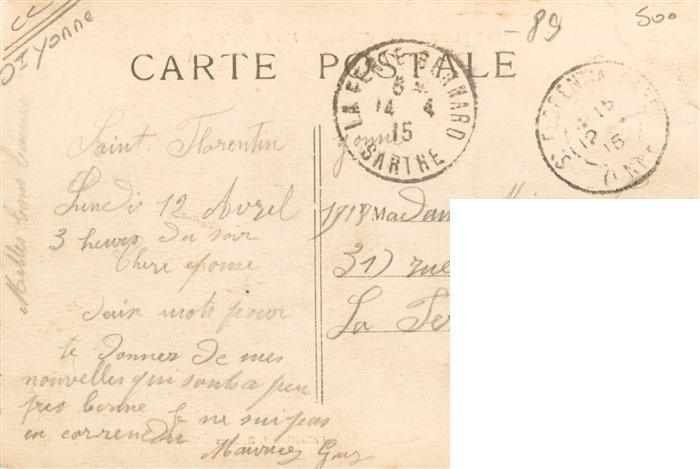 -89
500
D'Yonne
CARTE POSTALE
LA FERTE-BERNARD
6
14 4
15
SARTHE
15
12
15
Saint Florentin
Yonne
Lundi 12 Avril
3 heures du soir
Chere epouse
deux mots pour
te donner de mes
nouvelles qui sont a peu
pres bonne je ne suis pas
en
Maurice
Madam
31) rue
La Fer
Mille bons baisers